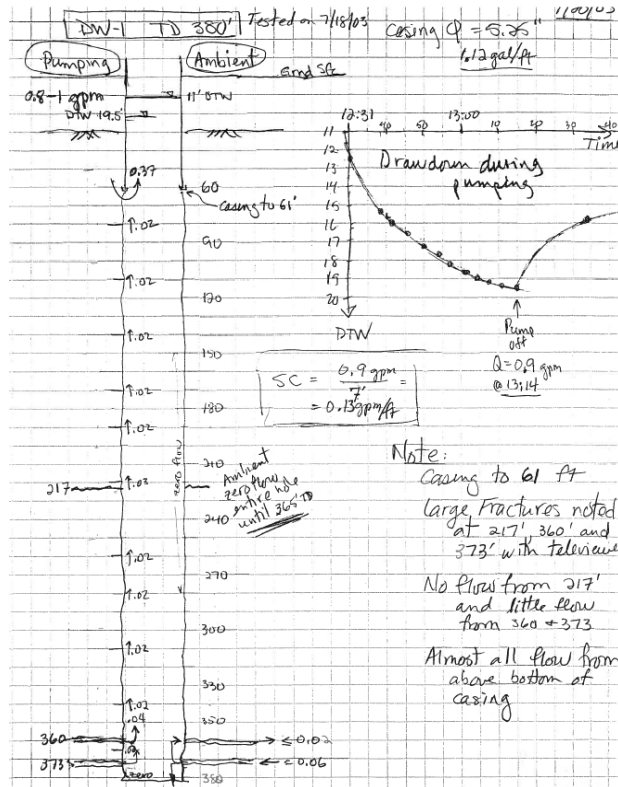 DW-1 TD 380' Tested on 7/18/03
casing φ = 5.25"
1.12 gal/ft
Pumping
Ambient
Grnd Sfc
0.8-1 gpm
11' DTW
DTW 19.5'
0.37
60
casing to 61'
↑.02
90
↑.02
120
↑.02
150
↑.02
180
↑.02
210
217
↑.03
zero flow
Ambient
zero flow
entire hole
until 365' TD
240
↑.02
270
↑.02
300
↑.02
330
↑.02
.04
350
360
≤0.02
373
<0.06
zero
380
12:31
40
50
13:00
10
20
30
40
Time
11
12
13
14
15
16
17
18
19
20
DTW
Drawdown during
pumping
Pump
off
Q=0.9 gpm
@ 13:14
SC = 0.9 gpm / 7' =
= 0.13 gpm/ft
Note:
Casing to 61 ft
Large Fractures noted
at 217', 360' and
373' with televiewe
No flow from 217'
and little flow
from 360 + 373
Almost all flow from
above bottom of
casing